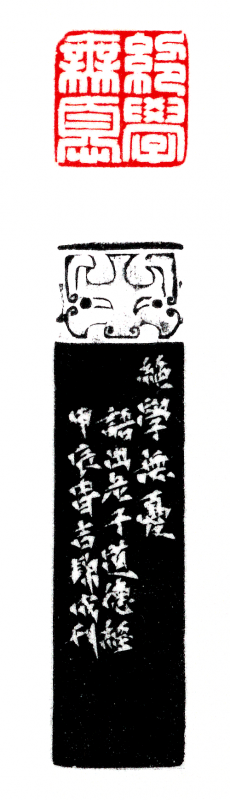 絕學
無憂
絕學無憂
語出老子道德經
甲辰春吉郎代刊